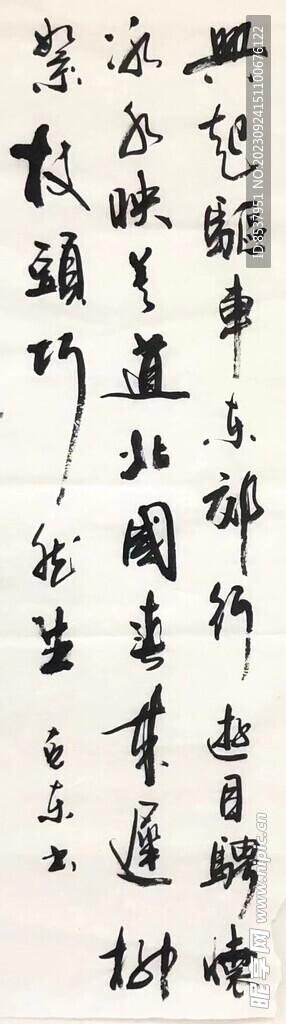 興起驅車东郊行遊目騁懷
水映莫道北國春來遲柳
絮枝頭巧然生
东书
ID:8537951 NO.20230924151100676122
昵享网 www.nipic.cn